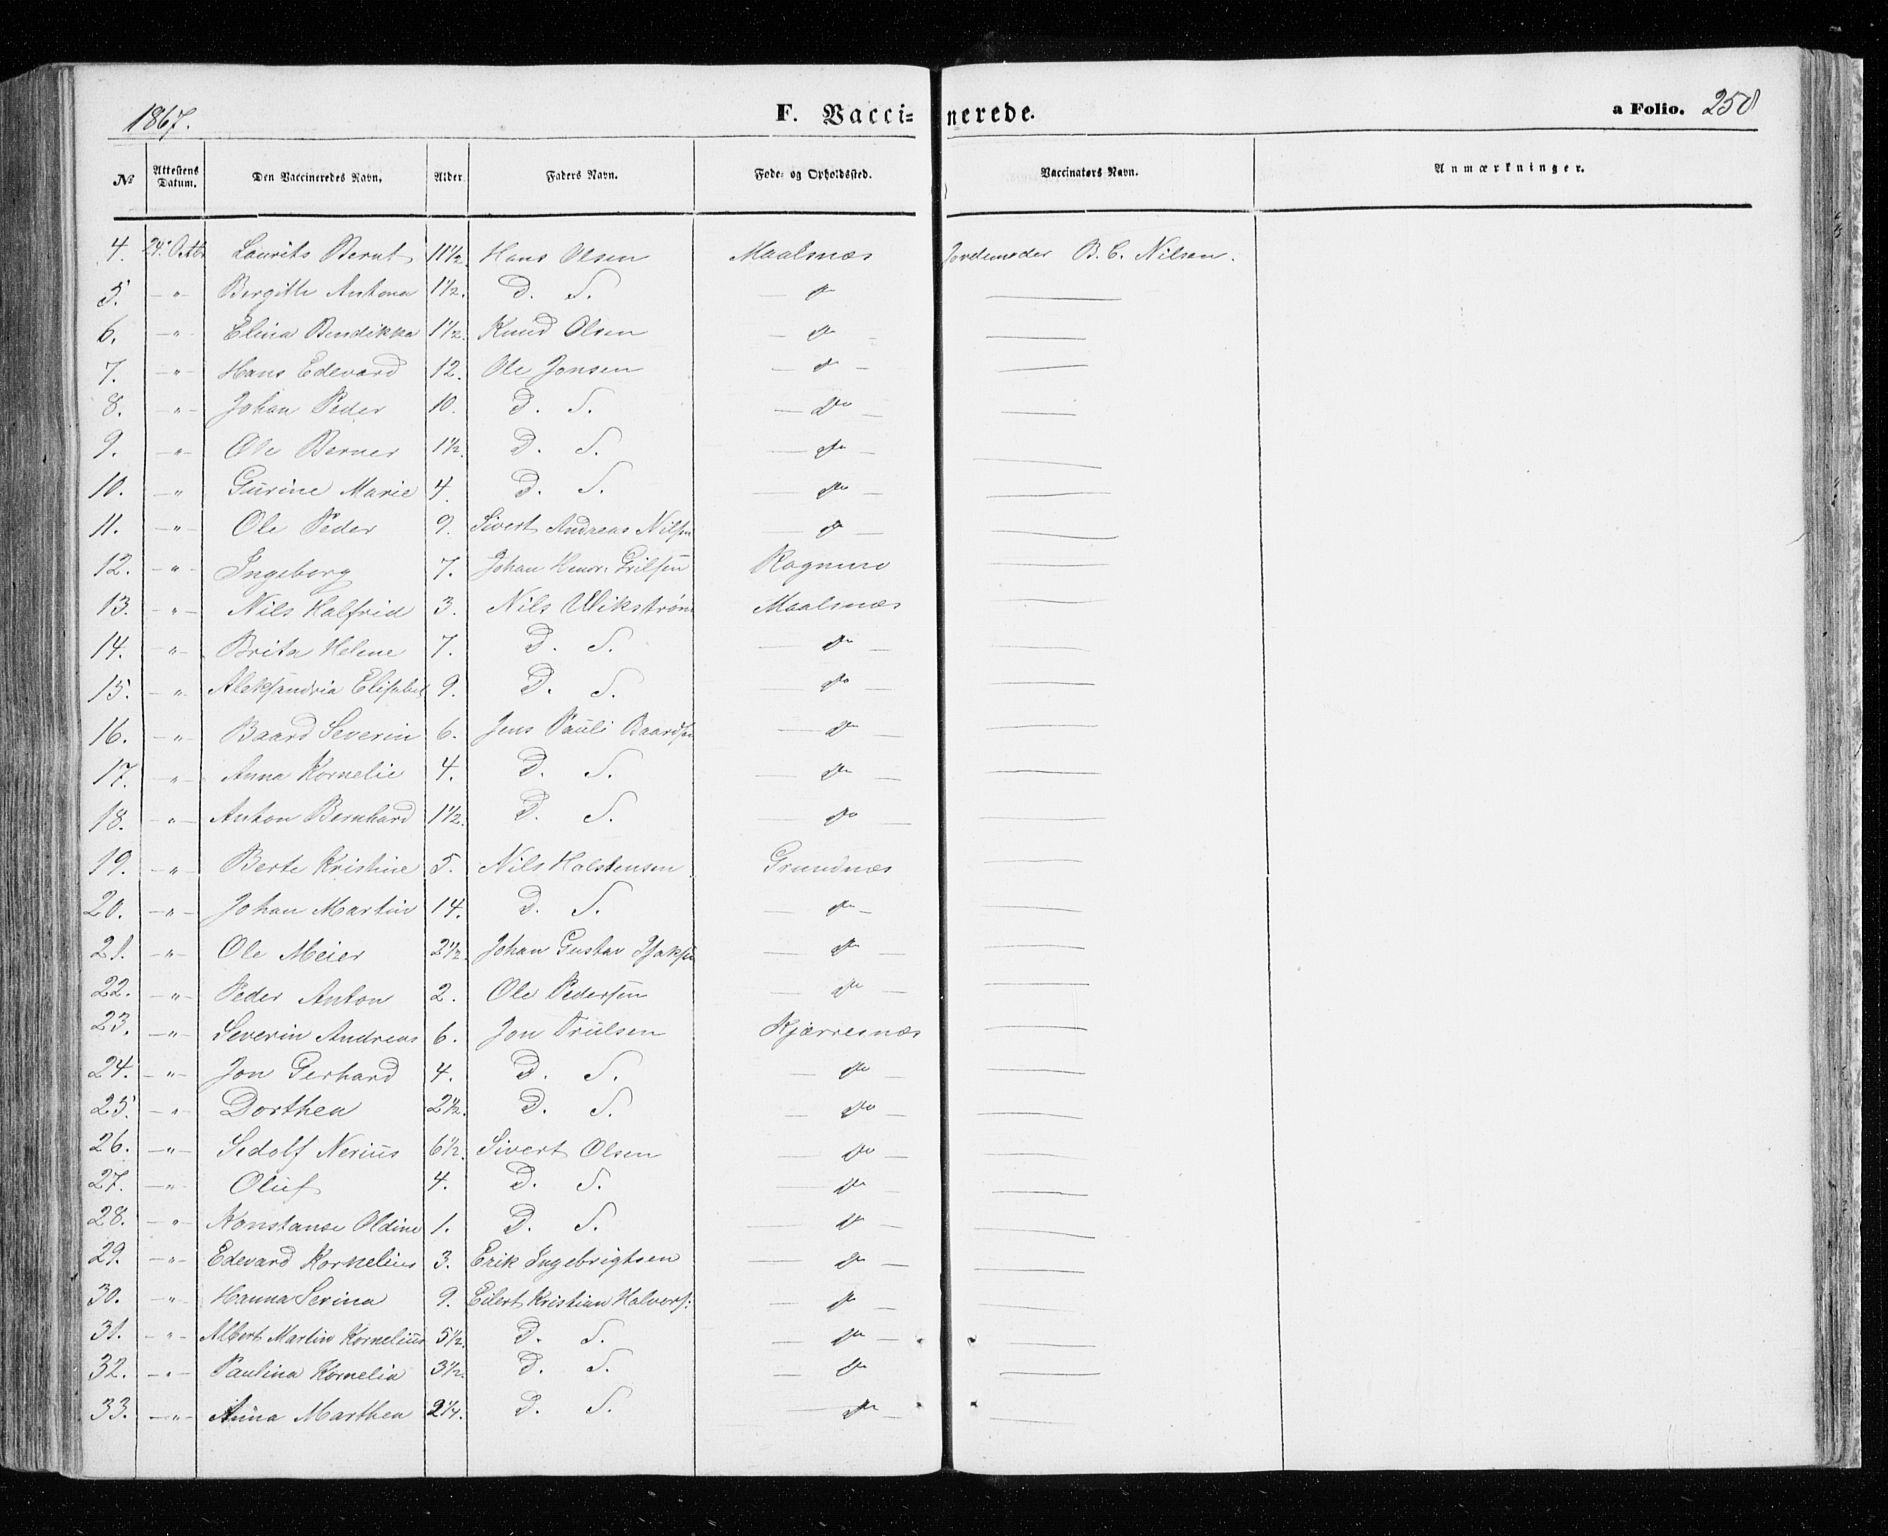 1867. F. Vaccinerede. a Folio. 250
№ Attestens Datum. Den Vaccineredes Navn. Alder. Faders Navn. Føde- og Opholdssted. Vaccinators Navn. Anmærkninger.
4. 24. Octbr Laurits Bernt 11 1/2 Hans Olsen Maalsnæs Jordemoder B. C. Nilsen.
5. — " — Bergitte Antona 1 1/2. D. S. — " —
6. — " — Elina Bendikka 1 1/2. Knud Olsen — " —
7. — " — Hans Edevard 12. Ole Jonsen — " —
8. — " — Johan Peder 10. D. S. — " —
9. — " — Ole Berner 1 1/2. D. S. — " —
10. — " Gurine Marie 4. D. S. — " —
11. — " — Ole Peder 9. Sivert Andreas Nilsen — " —
12. — " Ingeborg 7. Johan Henr:
13. — " Nils Halfrid 3. Nils Wikstrøm Maalsnæs
14. — " — Brita Helene 7. D. S. — " —
15. — " Aleksandria Elisabet 9. D. S. — " —
16. — " Baard Severin 6. Jens Pauli Baardsen — " —
17. — " Anna Kornelie 4. D. S. — " —
18. — " — Anton Bernhard 1 1/2. D. S. — " —
19. — " — Berte Kristine 5. Nils Holstensen Grundnæs
20. — " — Johan Martin 14. D. S. — " —
21. — " — Ole Meier 2 1/2. Johan Gustav Isaksen — " —
22. — " — Peder Anton 2. Ole Pedersen — " —
23. — " — Severin Andreas 6. Jon Trulsen Kjærresnæs
24. — " — Jon Gerhard 4. D. S. — " —
25. — " — Dorthea 2 1/2. D. S. — " —
26. — " — Sedolf Nerius 6 1/2. Sivert Olsen — " —
27. — " — Oluf 4. D. S. — " —
28. — " Konstanse Oldine 1. D. S. — " —
29. — " — Edevard Kornelius 3. Erik Ingebrigtsen — " —
30. — " Hanna Serina 9. Eilert Kristian Halvors: — " —
31. — " — Albert Martin Kornelius 5 1/2. D. S. — " —
32. — " — Paulina Kornelia 3 1/2. D. S. — " —
33. — " — Anna Marthea 2 1/4. D. S. — " —